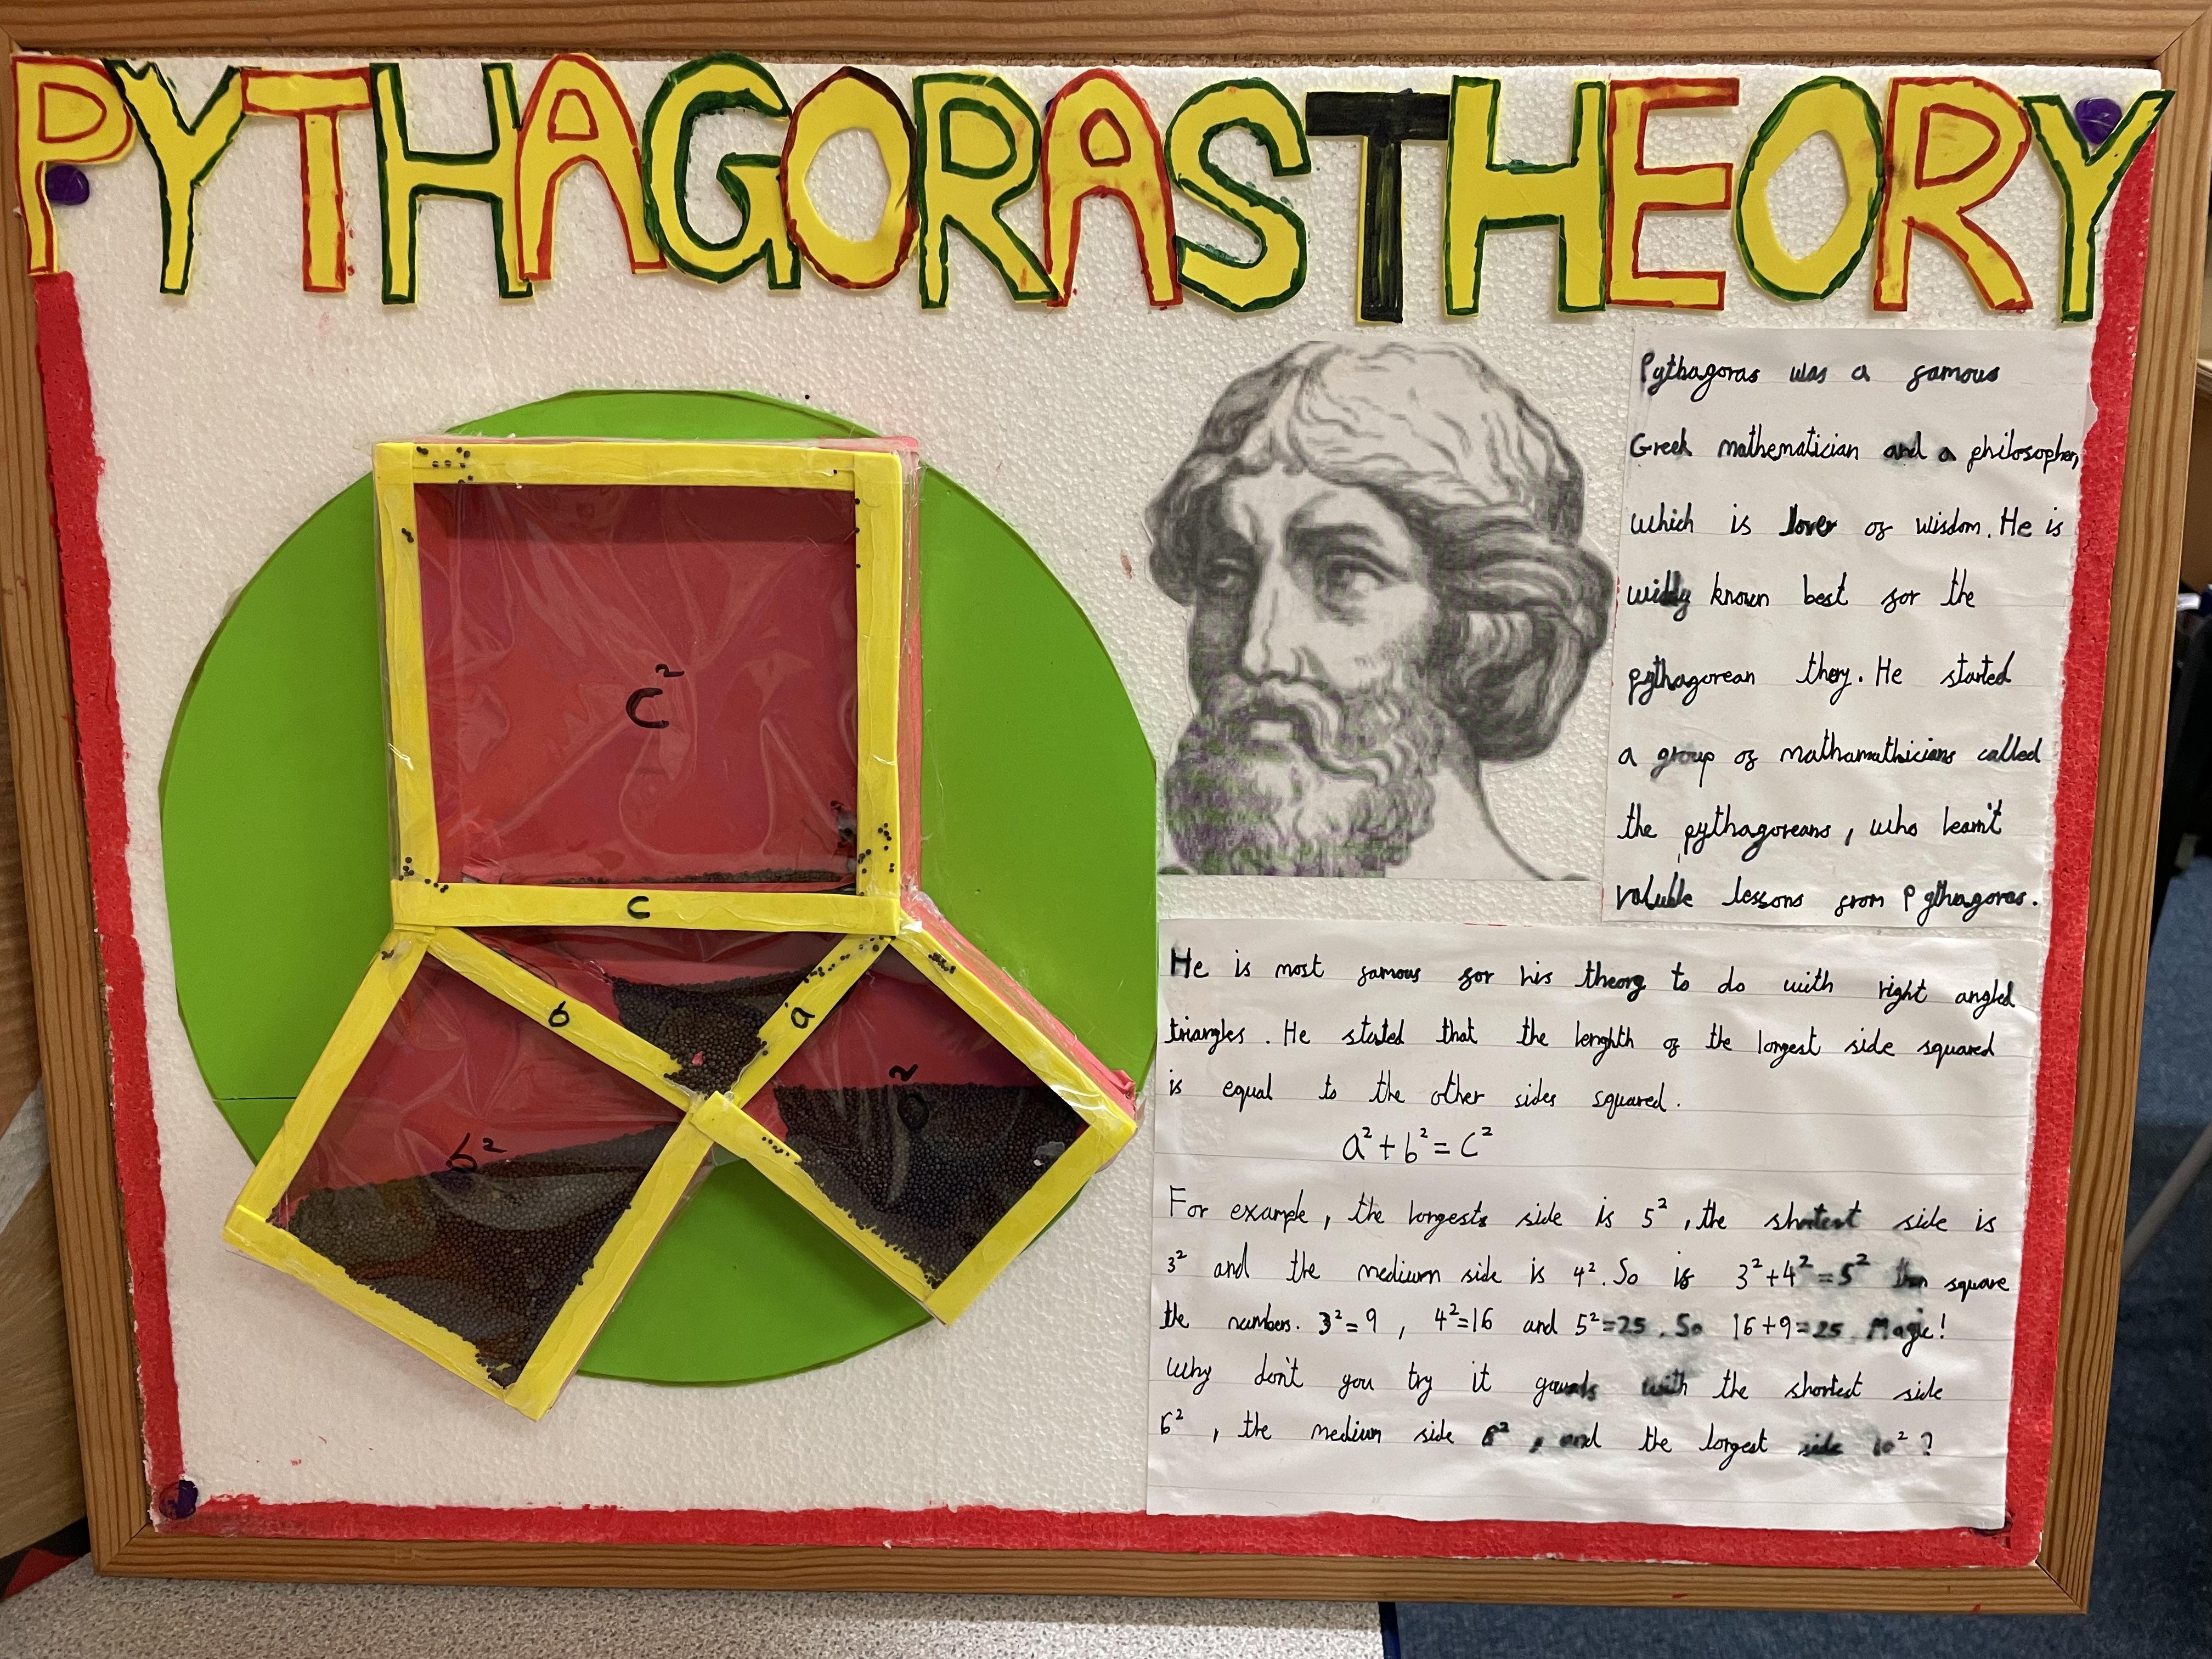 PYTHAGORAS THEORY
c²
c
b
a
b²
a²
Pythagoras was a famous
Greek mathematician and a philosopher,
which is lover of wisdom. He is
widly known best for the
pythagorean thory. He started
a group of mathamathicians called
the pythagoreans, who learnt
valuble lessons from Pythagoras.
He is most famous for his theory to do with right angled
triangles. He stated that the lenghth of the longest side squared
is equal to the other sides squared.
a²+b²=c²
For example, the longests side is 5², the shortest side is
3² and the medium side is 4². So is 3²+4²=5² square
the numbers. 3²=9, 4²=16 and 5²=25. So 16+9=25 Magic!
Why don't you try it with the shortest side
6², the medium side 8², and the longest side 10²?